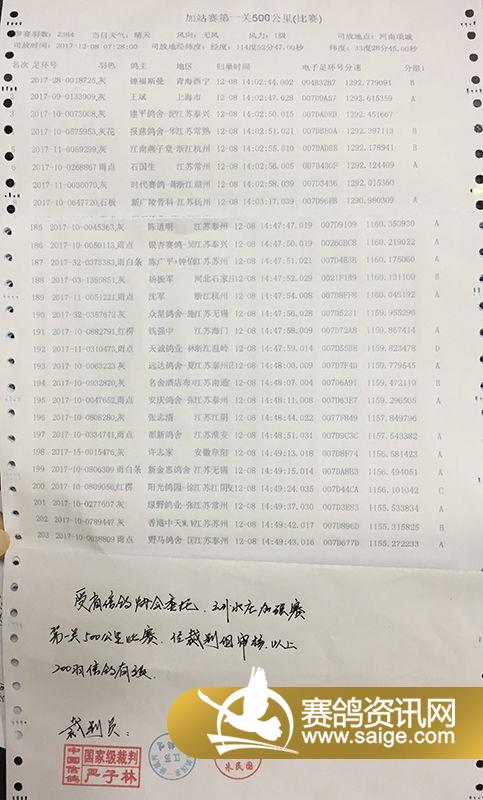 加站赛第一关500公里(比赛)
参赛羽数：2384 当日天气：晴天 风向：无风 风力：1级 司放地点：河南项城
司放时间：2017-12-08 07:28:00 司放地经纬度：经度：114度52分47.00秒 纬度：33度28分45.00秒
名次 足环号 羽色 鸽主 地区 归巢时间 电子足环号 分速 分组1
2017-28-0018725,灰 德福斯曼 青海西宁 12-08 14:02:44.002 004B32B7 1292.779091 B
2 2017-09-0133909,灰 王斌 上海市 12-08 14:02:47.028 007D9A57 1292.615359 A
3 2017-10-0073008,灰 江苏泰兴 12-08 14:02:50.015 1292.451667
2017-10-0575953,灰花 江苏常熟 12-08 14:02:51.021 1292.397113 B
5 2017-11-0069299,灰 江南燕子堂-浙江杭州 12-08 14:02:55.028 1292.178941 B
2017-10-0268867,雨点 石国生 江苏常州 12-08 14:02:56.009 007D430F 1292.124409 A
2017-11-0030070,灰 浙江湖州 12-08 14:02:58.039 007D3436 1292.015360
2017-10-0647720,石板 江苏扬州 12-08 14:03:17.039 007D96EB 1290.980309 A
185 2017-10-0045363,灰 陈道明 江苏泰州 12-08 14:47:47.019 007D9109 1160.350930 A
186 2017-10-0050113,雨点 江苏泰兴 12-08 14:47:50.019 00260BC8 1160.219022 A
187 2017-32-0373383,雨白条 江苏泰州 12-08 14:47:51.020 007D4E3E 1160.175060 A
188 2017-03-1355851,灰 杨振军 河北石家庄 12-08 14:47:52.020 0021F1B9 1160.131100 B
189 2017-11-0051221,雨点 沈军 浙江杭州 12-08 14:47:54.018 007D8FF8 1160.045192 A
190 2017-32-0357672,灰 众星鸽舍 江苏无锡 12-08 14:47:56.008 007D5231 1159.955296
191 2017-10-0882791,红楞 钱强中 江苏海门 12-08 14:47:58.009 007D72A8 1159.867414 A
192 2017-11-0310473,雨点 天诚鸽业-林浙江温岭 12-08 14:47:59.014 007D55BE 1159.823478 D
193 2017-10-0063223,灰 远达鸽舍 江苏泰州 12-08 14:48:00.009 007D7F4D 1159.779545 A
194 2017-10-0932820,灰 江苏南通 12-08 14:48:07.004 007D6A91 1159.472110 B
195 2017-10-0047652,雨点 安庆鸽舍 江苏泰州 12-08 14:48:11.008 007D63E7 1159.296505 A
196 2017-10-0808280,灰 张志清 江苏江阴 12-08 14:48:44.022 0077F849 1157.849796
197 2017-10-0334741,雨点 鄢新鸽舍 江苏淮安 12-08 14:48:51.031 007D9C3C 1157.543382 A
198 2017-15-0015476,灰 许志家 安徽阜阳 12-08 14:49:13.019 007D8F74 1156.581423 A
199 2017-10-0806309,雨白条 新金惠鸽舍 江苏无锡 12-08 14:49:15.018 007DA8B3 1156.494051 A
200 2017-10-0809056,红楞 阳光鸽园 江苏江阴 12-08 14:49:24.035 007D44CA 1156.101042 C
201 2017-10-0277607,灰 绿野鸽业 江苏常州 12-08 14:49:37.030 007D3E83 1155.533834 A
202 2017-10-0789447,灰 江苏苏州 12-08 14:49:42.017 007D896D 1155.315825 B
203 2017-10-0038809,雨点 野马鸽舍 江苏泰州 12-08 14:49:43.040 007D677D 1155.272233 A
第一关500公里比赛，经裁判组审核，以上
200羽信鸽有效
裁判员：
中国信鸽
国家级裁判
严子林
江苏
朱民国
赛鸽资讯网
www.saige.com